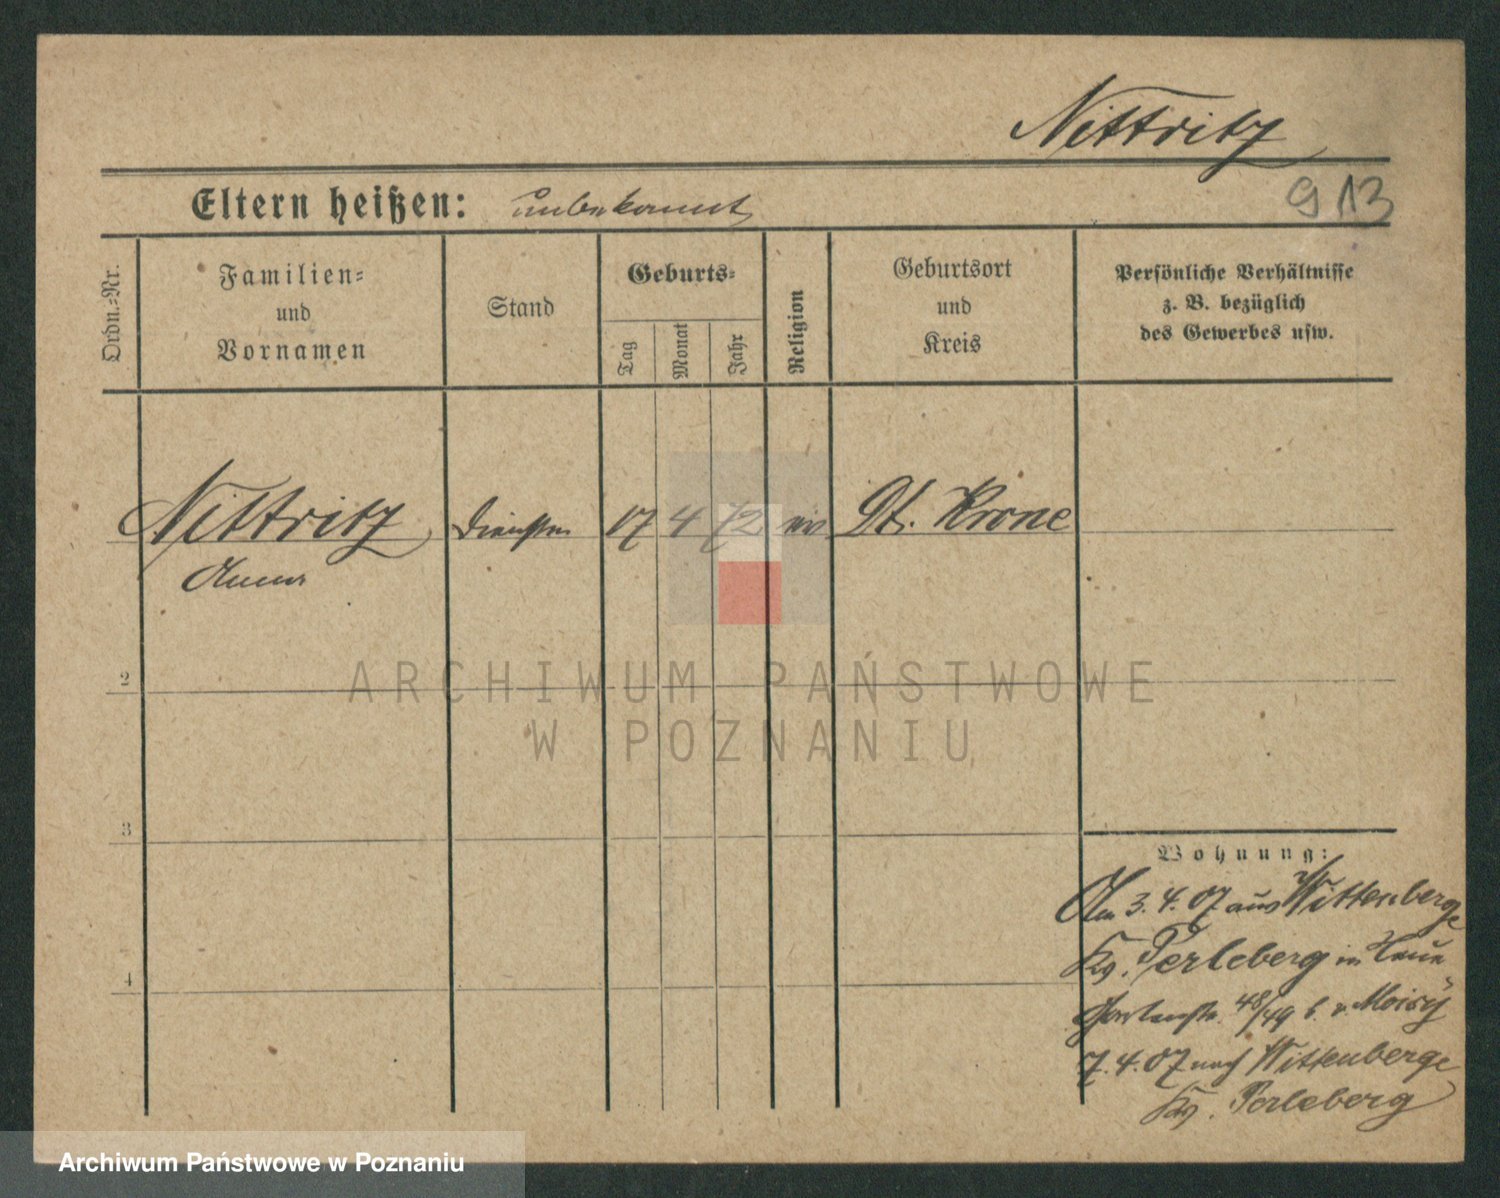 Nittritz
913
Eltern heißen: unbekannt
Ordn.-Nr.
Familien-
und
Vornamen
Stand
Geburts-
Tag
Monat
Jahr
Religion
Geburtsort
und
Kreis
Persönliche Verhältnisse
z. B. bezüglich
des Gewerbes usw.
Nittritz 17 4 72 Dt. Krone
Anna
2
ARCHIWUM PAŃSTWOWE
W POZNANIU
3
Wohnung:
Am 3.4.07 aus Wittenberge
Kr. Perleberg in Neue
Gartenstr. 48/49 b. v. Moisy
7.4.07 nach Wittenberge
4
Kr. Perleberg
Archiwum Państwowe w Poznaniu